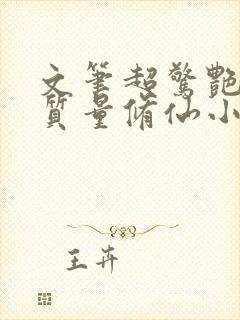 文笔超惊艳
质量脩仙小
王卉